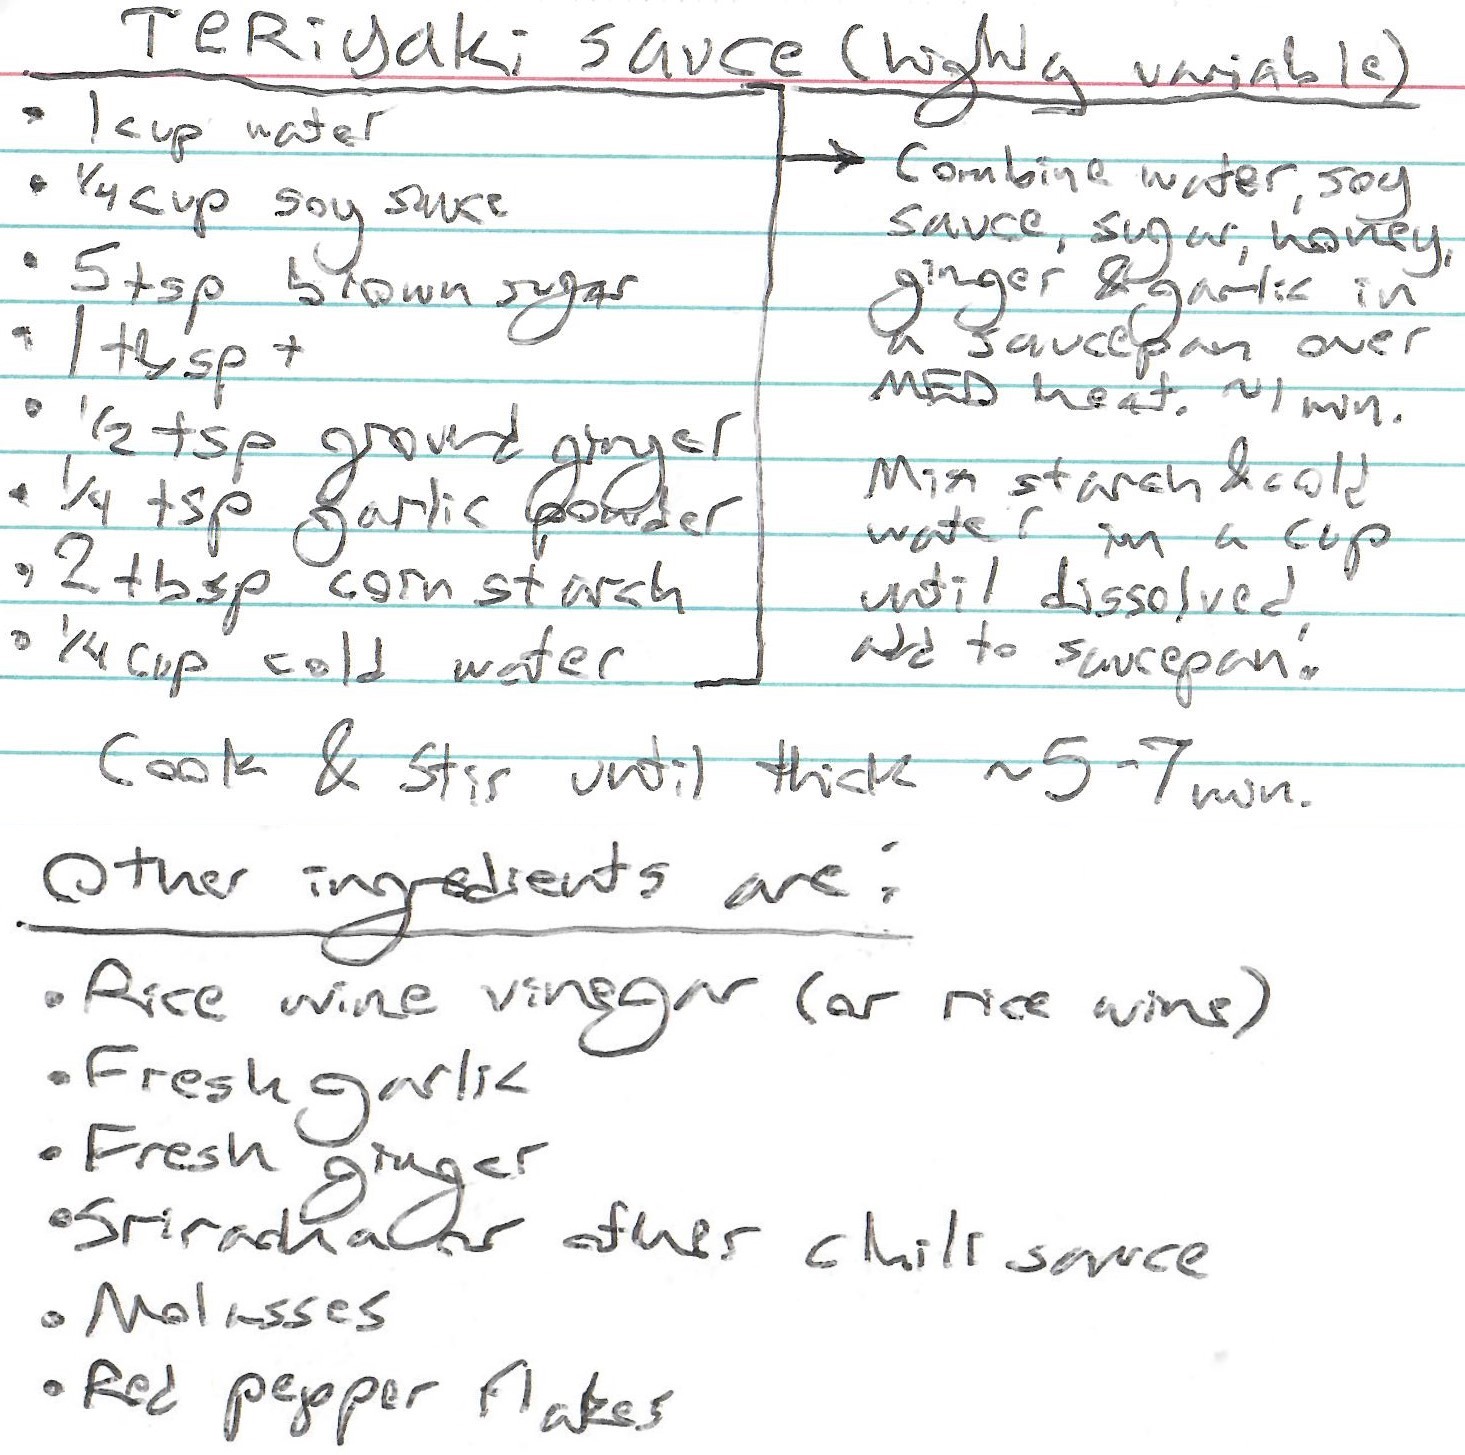 Teriyaki sauce (highly variable)
• 1 cup water
• 1/4 cup soy sauce
• 5 tsp brown sugar
• 1 tbsp +
• 1/2 tsp ground ginger
• 1/4 tsp garlic powder
• 2 tbsp corn starch
• 1/4 cup cold water
→ Combine water, soy
sauce, sugar, honey,
ginger & garlic in
a saucepan over
MED heat. ~1 min.
Mix starch & cold
water in a cup
until dissolved,
add to saucepan.
Cook & stir until thick ~5-7 min.
Other ingredients are:
• Rice wine vinegar (or rice wine)
• Fresh garlic
• Fresh ginger
• Sriracha or other chili sauce
• Molasses
• Red pepper flakes